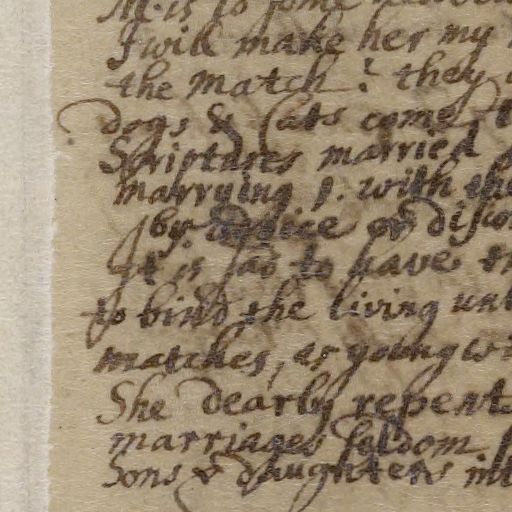 M. is so some
I will make her my
the match: they
dogs & Cats come t
Scriptures married
marrying s. with the
by advice or disco
It is sad to have th
to bind the living unt
matches, as young wi
She dearly repents
marriages seldom
Sons & daughters int